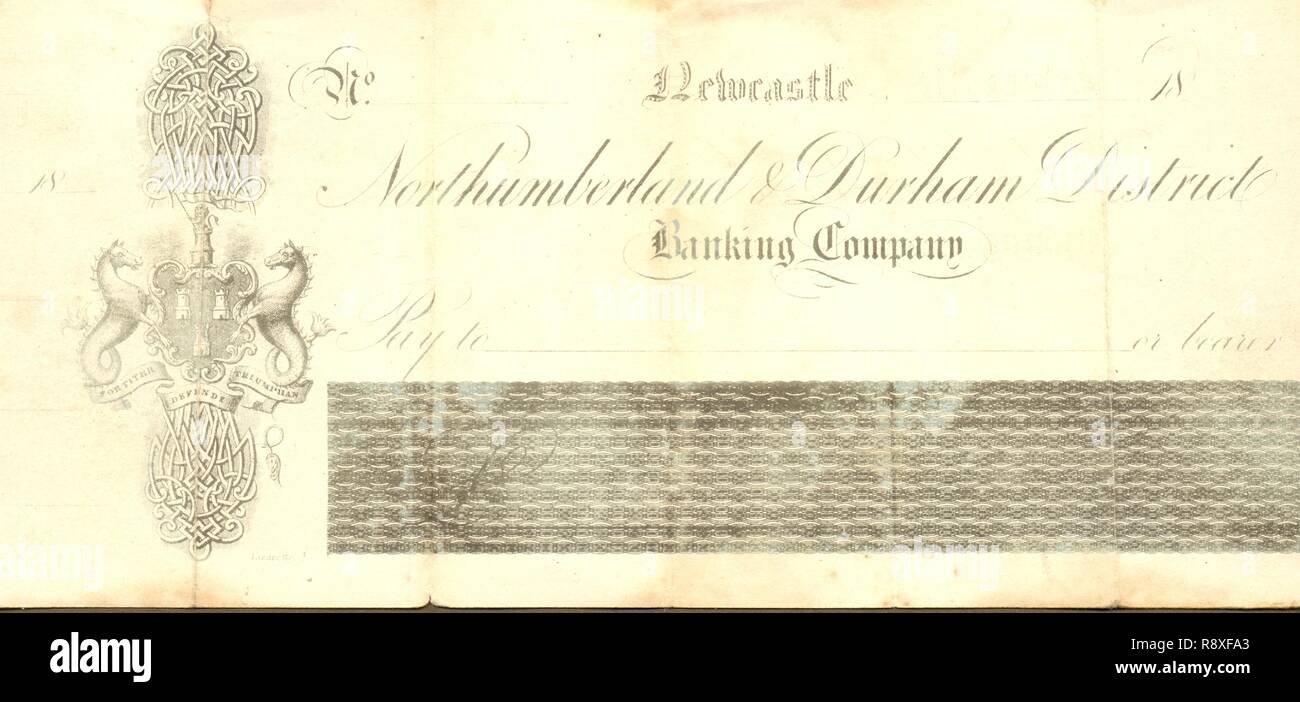 No. Newcastle 18
Northumberland & Durham District
18
Banking Company
Pay to or bearer
FORTITER DEFENDIT TRIUMPHAN
£
alamy
Image ID: R8XFA3
www.alamy.com